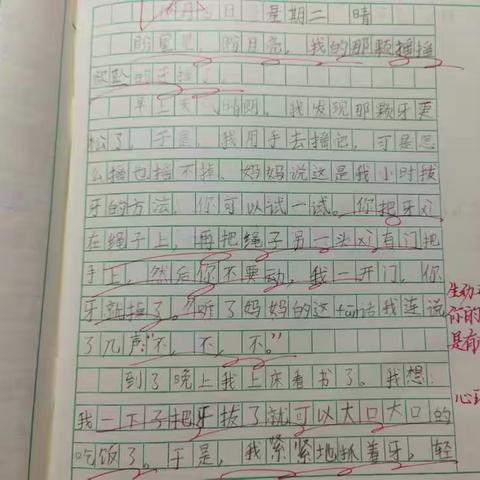 月 日 星期二 晴
盼星星，盼月亮，我的那颗摇摇
欲坠的牙
早上天气晴朗，我发现那颗牙更
松了，于是，我用手去摇它，可是怎
么摇也摇不掉，妈妈说这是我小时拔
牙的方法，你可以试一试。你把牙xì
在绳子上，再把绳子另一头xì在门把
手上，然后你不要动，我一开门，你
牙就掉了。听了妈妈的这fān话我连说
了几声“不，不，不。”
到了晚上我上床看书了。我想：
我一下子把牙拔了就可以大口大口的
吃饭了。于是，我紧紧地抓着牙，轻
生动
你的
是有
心理